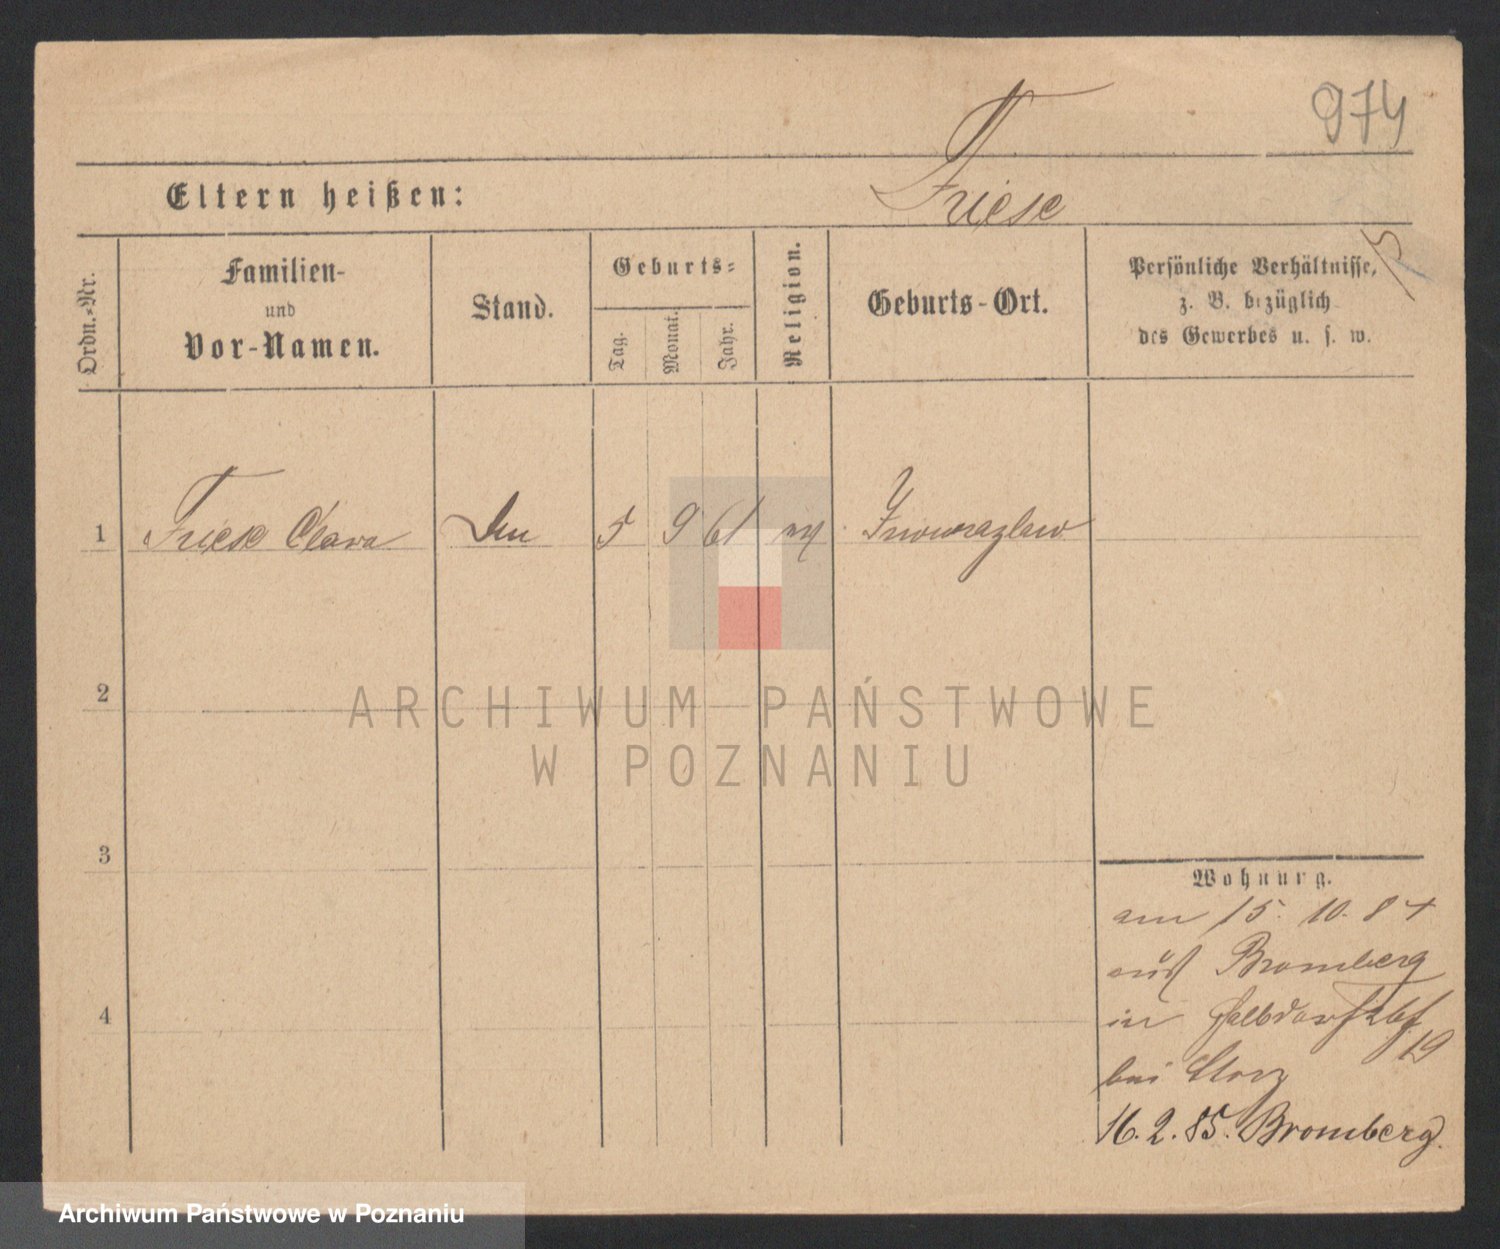 974
Friese
Eltern heißen:
15
Ordn.-Nr.
Familien-
und
Vor-Namen.
Stand.
Geburts-
Tag.
Monat.
Jahr.
Religion.
Geburts-Ort.
Persönliche Verhältnisse,
z. B. bezüglich
des Gewerbes u. s. w.
1 Friese Clara 5 9 61 Inowrazlaw
2
ARCHIWUM PAŃSTWOWE
W POZNANIU
3
Wohnung.
am 15. 10. 84
aus Bromberg
in Halbdorfstr
19
bei
4
16. 2. 85. Bromberg.
Archiwum Państwowe w Poznaniu